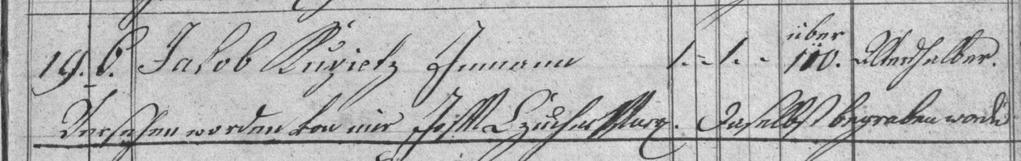 19. 6. Jakob Kuzietz Inmann 1. - 1. - über 110. Altershalber.
Versehen worden von mir Joseph Pfarr. Daselbst begraben worden